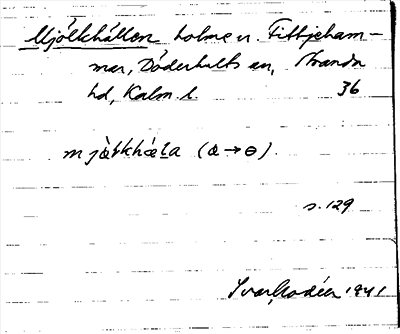 Mjölkhällen holme n. Fittjeham-
mar, Döderhults sn, Stranda
hd, Kalm. l. 36
mjælkhæla (æ → ɵ).
s. 129
Ivar Modéer 1941